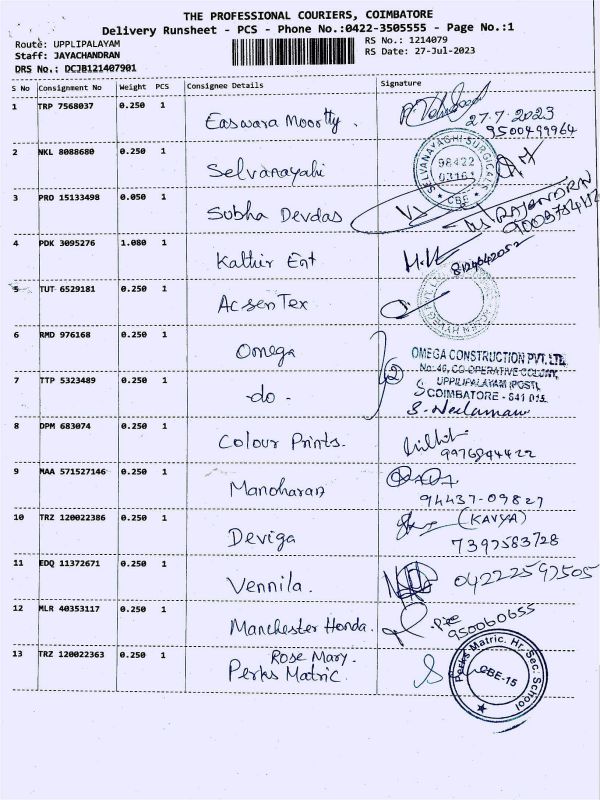 THE PROFESSIONAL COURIERS, COIMBATORE
Delivery Runsheet - PCS - Phone No.:0422-3505555 - Page No.:1
Route: UPPLIPALAYAM
RS No.: 1214079
Staff: JAYACHANDRAN
RS Date: 27-Jul-2023
DRS No.: DCJB121407901
S No Consignment No Weight PCS Consignee Details Signature
1 TRP 7568037 0.250 1 Easwara Moortty.
27.7.2023
9500499964
2 NKL 8088680 0.250 1 Selvanayahi
SELVANAYAGHI SURGICAL
98422
03161
CBE
3 PRO 15133498 0.050 1 Subha Devdas
RAJENDRAN
4 PDK 3095276 1.080 1 Kathir Ent
5 TUT 6529181 0.250 1 Acsen Tex
6 RMD 976168 0.250 1 Omega
2
OMEGA CONSTRUCTION PVT. LTD.
No: 46, CO-OPERATIVE COLONY,
UPPILIPALAYAM (POST),
COIMBATORE - 641 015.
7 TTP 5323489 0.250 1 -do-
8 DPM 683074 0.250 1 Colour Prints.
9976944422
9 MAA 571527146 0.250 1 Manoharan
94437-09827
10 TRZ 120022386 0.250 1 Deviga
(KAVYA)
7397583728
11 EDQ 11372671 0.250 1 Vennila.
04222597505
12 MLR 40353117 0.250 1 Manchester Honda.
950060655
13 TRZ 120022363 0.250 1 Rose Mary.
Perks Matric.
Perks Matric. Hr. Sec. School
CBE-15